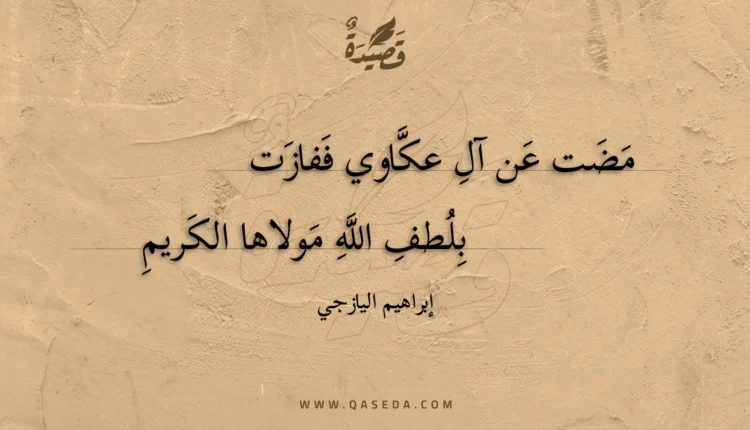 قَصِيدَةٌ
مَضَت عَن آلِ عكَّاوي فَفازَت
بِلُطفِ اللَّهِ مَولاها الكَريمِ
إبراهيم اليازجي
WWW.QASEDA.COM